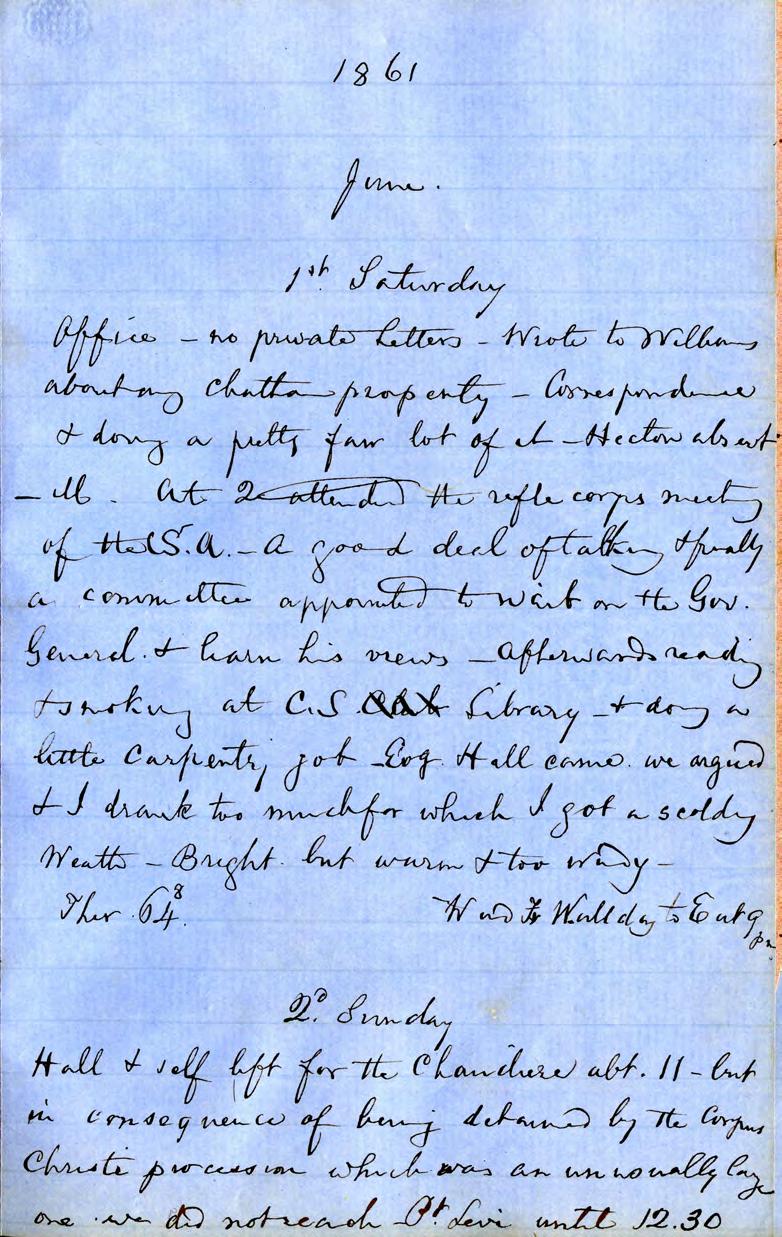 1861
June.
1st Saturday
Office - no private letters - Wrote to Williams
about my Chatham property - Correspondence
& doing a pretty fair lot of it - Hector absent
- M. At 2 attended the rifle corps meeting
of the C.S.A. - A good deal of talking & finally
a committee appointed to wait on the Gov.
General & learn his views - Afterwards reading
& smoking at C.S. Club Library - & doing a
little carpentry job - Evg. Hall came. we argued
& I drank too much for which I got a scolding
Weath - Bright but warm & too windy -
Ther. 64.8 Wind W all day to E at 9 pm.
2d. Sunday
Hall & self left for the Chaudiere abt. 11 - but
in consequence of being detained by the Corpus
Christi procession which was an unusually large
one we did not reach Pt. Levi until 12.30